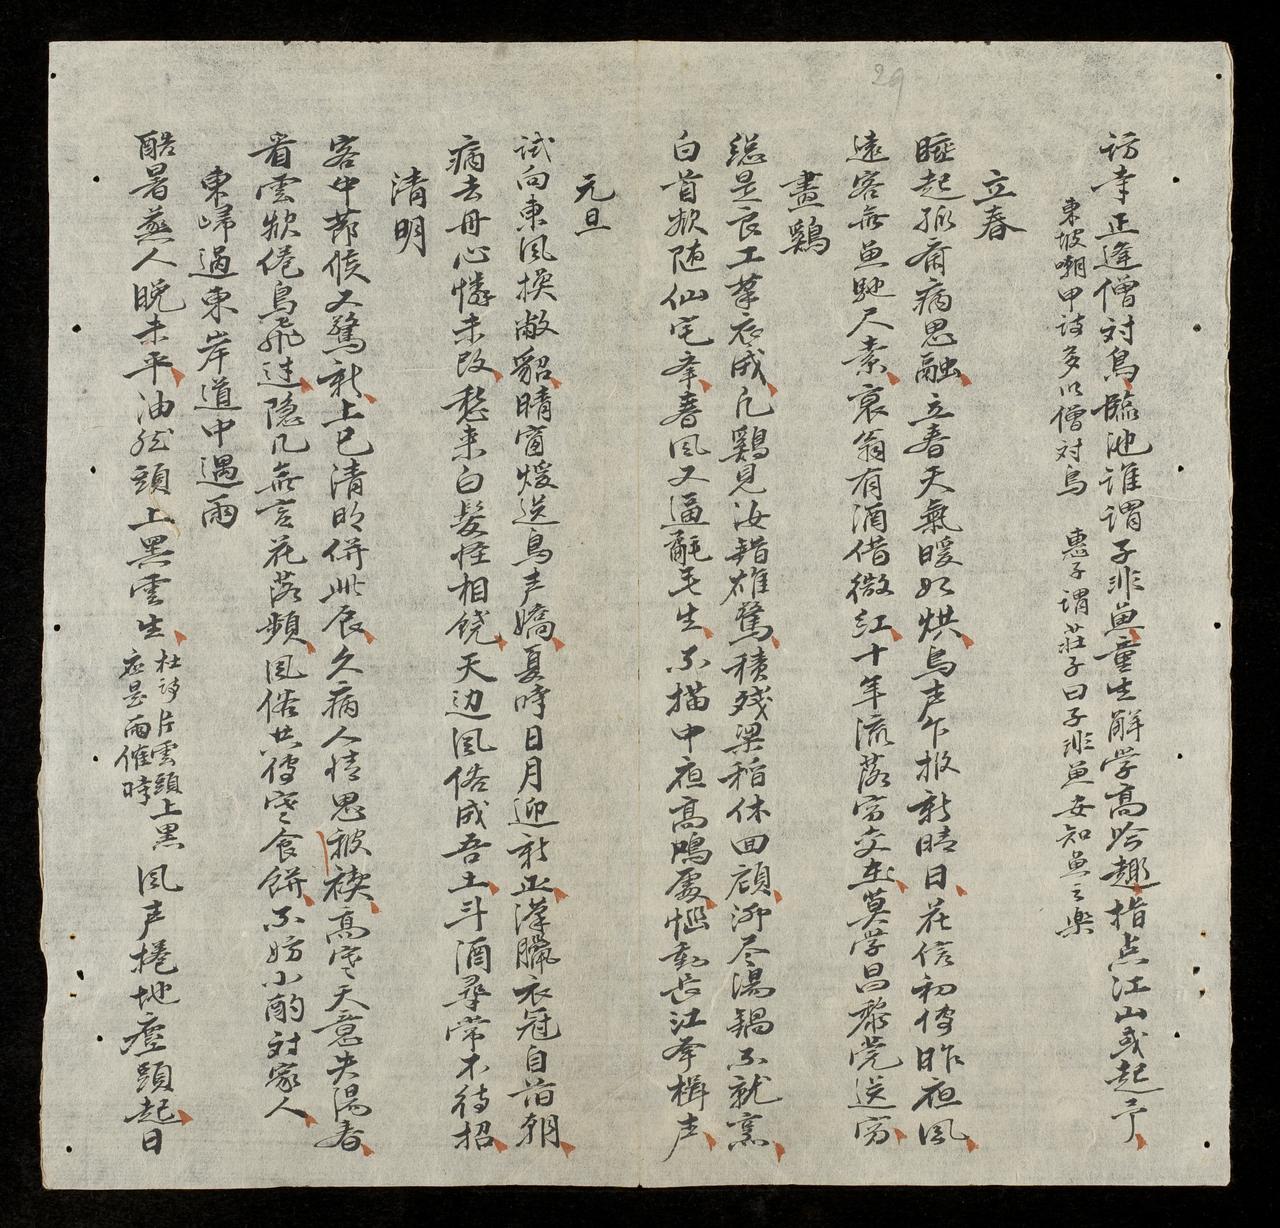 訪幸正逢僧対鳥臨池誰謂子非魚童生解学高吟趣指点江山或起予
東坡嘲甲詩多以僧対鳥 惠子謂莊子曰子非魚安知魚之樂
立春
睡起孤斎病思融立春天氣暖如烘鳥声乍报新晴日花信初传昨夜风
遠客無魚馳尺素衰翁有酒借微红十年流落穷交在莫学昌黎党送穷
畫鷄
総是良工筆底成凡鷄見汝錯雄驚積残梁稲休回顧沸尽湯鍋不就烹
白首欲随仙宅举春风又逼毛生不描中夜高鳴處恼動長江举楫声
元旦
试向東風換敝貂晴窗煖送鳥声嬌夏時日月迎新正漢臘衣冠自旧朝
病去丹心憐未改愁来白髮恠相饒天边風俗成吾土斗酒尋常不待招
清明
客中節候又驚新上巳清明併此辰久病人情思祓禊高寒天意失湯春
省雲欲倦鳥飛迟隐几無言花落頻風俗共傳寒食餅不妨小酌対家人
東歸過東岸道中遇雨
酷暑蒸人晚未平油然頭上黑雲生杜詩片雲頭上黑应是雨催時風声捲地塵頭起日
29